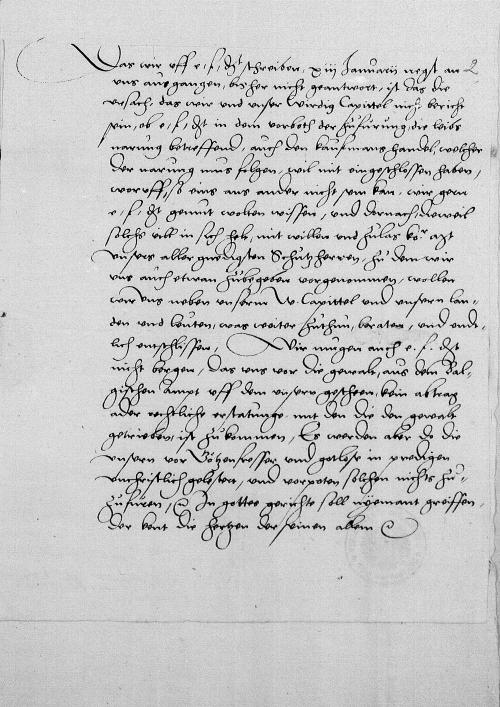 Das wir vff e. f. dt schreiben, xiij Januarij negst an
vns ausgangen, bisher nicht geantwort, ist das die
vrsach, das wir vnd vnser Wirdig Capittel nicht bericht
sein, ob e. f. dt in dem verboth der zufurung, die leibs
narung betreffend, auch den kaufmanshandel, welcher
der narung mus folgen, wil mit eingeschlossen haben,
worvff, so eins ans ander nicht sein kan, wir gern
e. f. dt gemut wolten wissen, vnd dernach, dieweil
solchs vill in sich helt, mit willen vnd zulas ko.r
vnsers aller gnedigsten Schutzherren, zu dem wir
vns auch etwan zubegeben vorgenommen, wollen
wir vns neben vnserm W. Capittel vnd vnsern lan-
den vnd leuten, was weiter zuthun, beraten, vnd end-
lich entschlissen, Wir mugen auch e. f. dt
nicht bergen, das vns vor die gewalt, aus dem
gischen Ampt vff dem vnsern gescheen, kein abtrag
ader rechtliche erstatunge mit den die den gewalt
getrieben, ist zukommen, Es werden aber do die
vnsern vor Gotzenfresser vnd gotlose in predigen
vnchristlich gelestert, vnd verpoten solchen nichts zu-
zufuren, In gottes gerichte soll nyemant greiffen,
der kent die hertzen der seinen allein